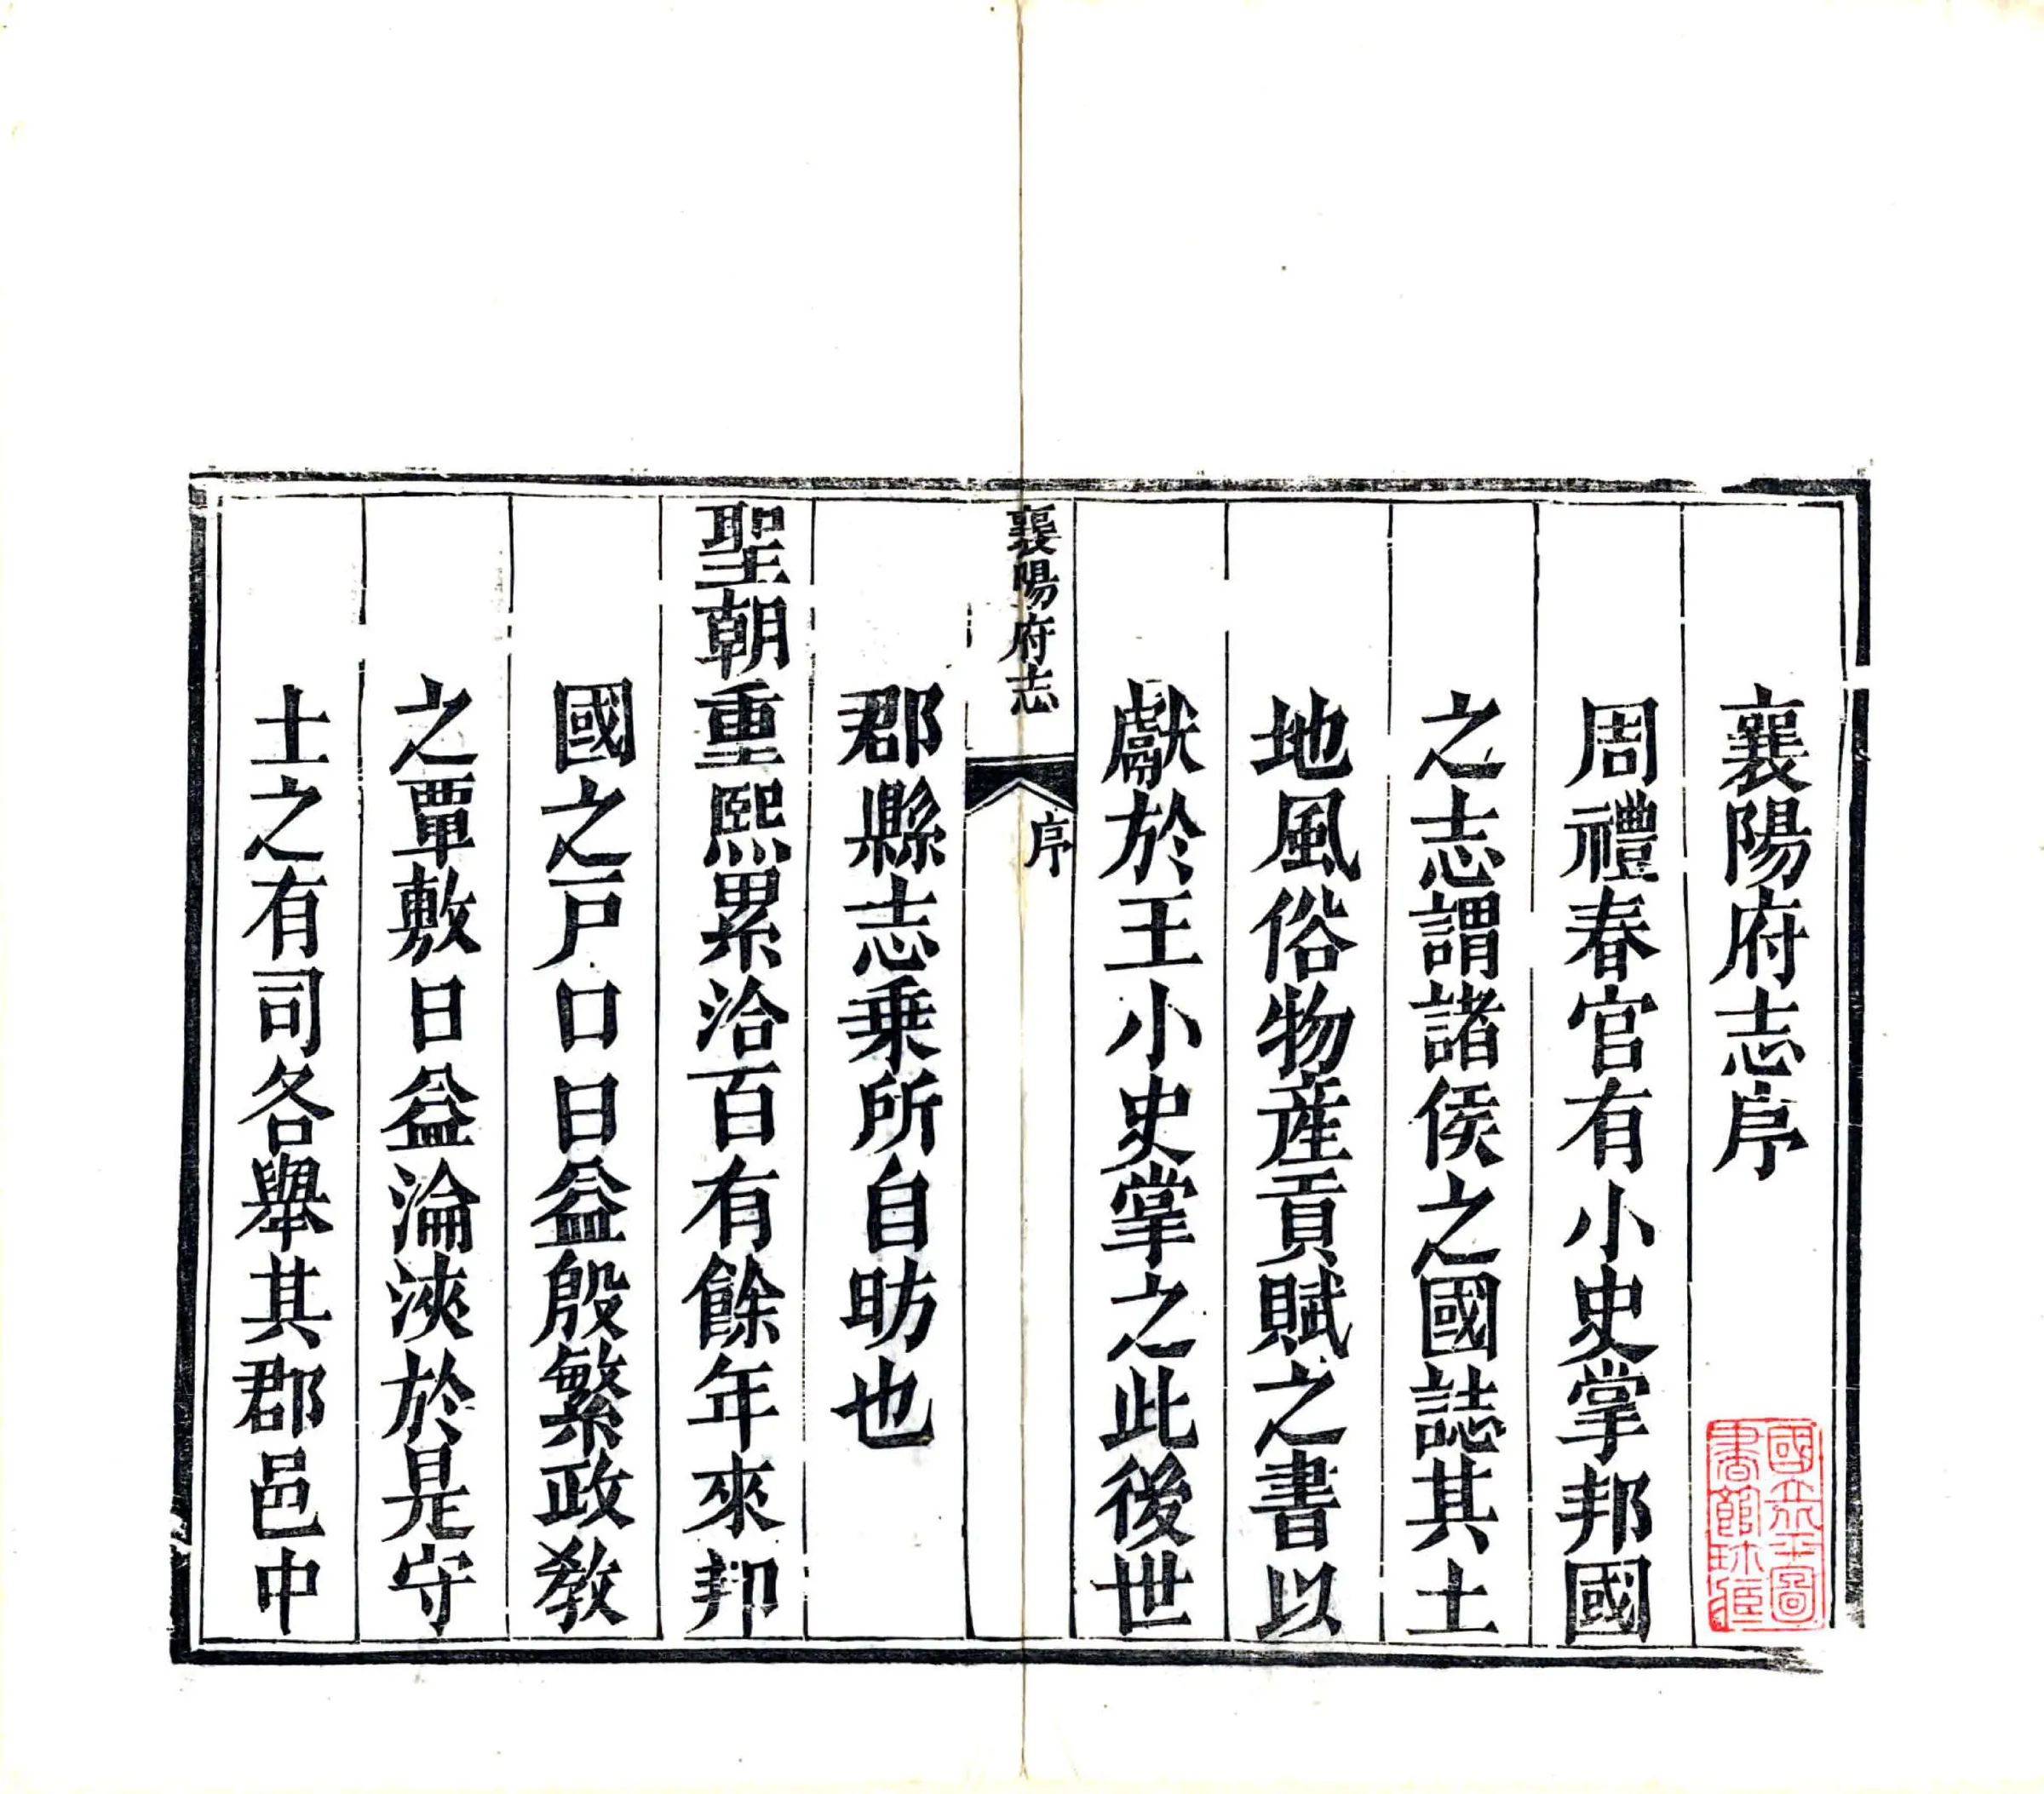 襄陽府志序
周禮春官有小史掌邦國
之志謂諸侯之國誌其土
地風俗物產貢賦之書以
獻於王小史掌之此後世
襄陽府志
序
郡縣志乗所自昉也
聖朝重熙累洽百有餘年來邦
國之戸口日益殷繁政敎
之覃敷日益淪浹於是守
土之有司各舉其郡邑中
國立北平圖
書館珍藏